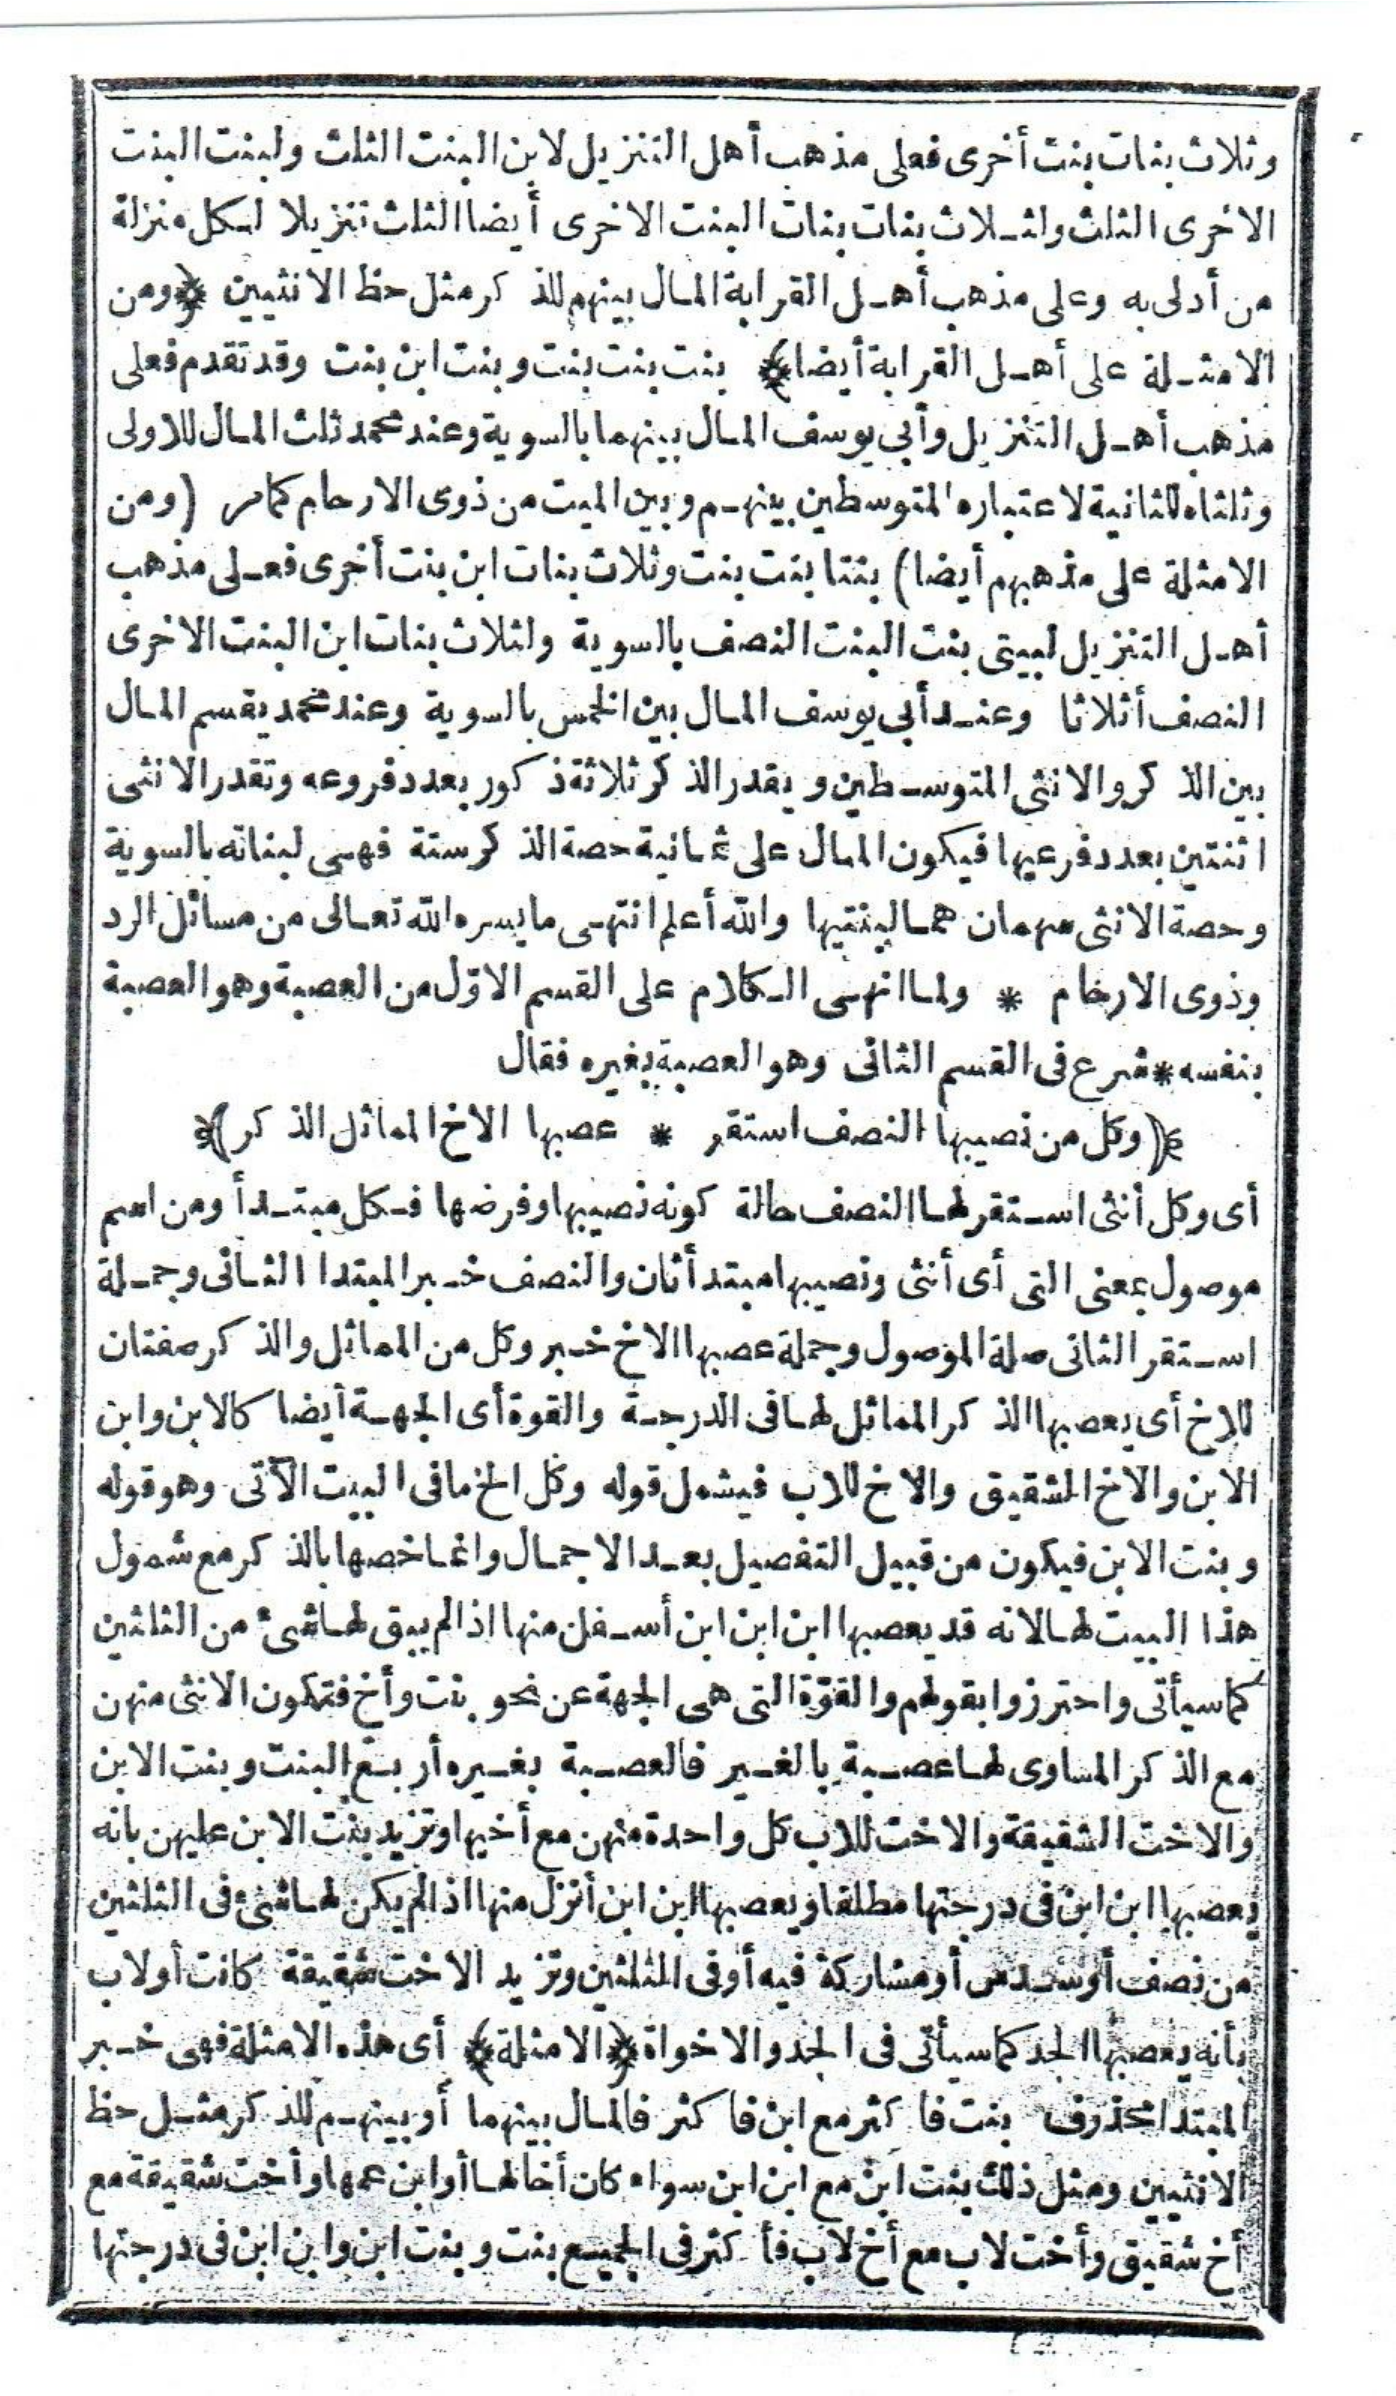 وثلاث بنات بنت أخرى فعلى مذهب أهل التنزيل لابن البنت الثلث ولبنت البنت
الاخرى الثلث ولثلاث بنات بنات البنت الاخرى أيضا الثلث تنزيلا لكل منزلة
من أدلى به وعلى مذهب أهل القرابة المال بينهم للذكر مثل حظ الانثيين ﴿ومن
الامثلة على أهل القرابة أيضا﴾ بنت بنت بنت وبنت ابن بنت وقد تقدم فعلى
مذهب أهل التنزيل وأبي يوسف المال بينهما بالسوية وعند محمد ثلث المال للاولى
وثلثاه للثانية لاعتباره المتوسطين بينهم وبين الميت من ذوى الارحام كمامر (ومن
الامثلة على مذهبهم أيضا) بنتا بنت بنت وثلاث بنات ابن بنت أخرى فعلى مذهب
أهل التنزيل لبيتى بنت البنت النصف بالسوية ولثلاث بنات ابن البنت الاخرى
النصف أثلاثا وعند أبي يوسف المال بين الخمس بالسوية وعند محمد يقسم المال
بين الذكر والانثى المتوسطين ويقدر الذكر ثلاثة ذكور بعدد فروعه وتقدر الانثى
اثنتين بعدد فرعيها فيكون المال على ثمانية حصة الذكر ستة فهى لبناته بالسوية
وحصة الانثى سهمان هما لبنتيها والله أعلم انتهى مايسره الله تعالى من مسائل الرد
وذوى الارحام * ولما انهى الكلام على القسم الاوّل من العصبة وهو العصبة
بنفسه * شرع فى القسم الثانى وهو العصبة بغيره فقال
﴿(وكل من نصيبها النصف استقر * عصبها الاخ المماثل الذكر)﴾
أى وكل أنثى استقر لها النصف حالة كونه نصيبها وفرضها فكل مبتدأ ومن اسم
موصول بمعنى التى أى أنثى ونصيبها مبتدأ ثان والنصف خبر المبتدا الثانى وجملة
استقر الثانى صلة الموصول وجملة عصبها الاخ خبر وكل من المماثل والذكر صفتان
للاخ أى يعصبها الذكر المماثل لها فى الدرجة والقوة أى الجهة أيضا كالابن وابن
الابن والاخ الشقيق والاخ للاب فيشمل قوله وكل الخ ما فى البيت الآتى وهو قوله
وبنت الابن فيكون من قبيل التفصيل بعد الاجمال وانما خصها بالذكر مع شمول
هذا البيت لها لانه قد يعصبها ابن ابن ابن أسفل منها اذا لم يبق لها شئ من الثلثين
كماسيأتى واحترزوا بقولهم والقوّة التى هى الجهة عن نحو بنت وأخ فتكون الانثى منهن
مع الذكر المساوى لها عصبة بالغير فالعصبة بغيره أربع البنت وبنت الابن
والاخت الشقيقة والاخت للاب كل واحدة منهن مع أخيها وتزيد بنت الابن عليهن بانه
يعصبها ابن ابن فى درجتها مطلقا ويعصبها ابن ابن أنزل منها اذا لم يكن لها شئ فى الثلثين
من نصف أو سدس أو مشاركة فيه أو فى الثلثين وتزيد الاخت شقيقة كانت أو لاب
بأنه يعصبها الجد كماسيأتى فى الجد والاخواة ﴿الامثلة﴾ أى هذه الامثلة فهى خبر
المبتدا محذوف بنت فاكثر مع ابن فاكثر فالمال بينهما أو بينهم للذكر مثل حظ
الانثيين ومثل ذلك بنت ابن مع ابن ابن سواء كان أخا لها أو ابن عمها وأخت شقيقة مع
أخ شقيق وأخت لاب مع أخ لاب فأكثر فى الجميع بنت وبنت ابن وابن ابن فى درجتها